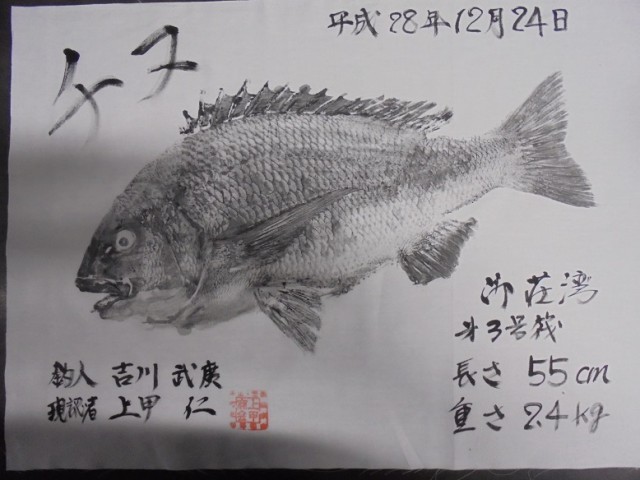 平成28年12月24日
チヌ
御荘湾
オ3号筏
長さ 55cm
重さ 2.4kg
釣人 吉川 武廣
現認者 上甲 仁